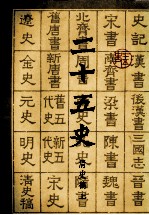 史記 漢書 後漢書 三國志 晉書
宋書 南齊書 梁書 陳書 魏書
二十五史
北齊書 周書
舊唐書 新唐書 舊五代史 新五代史 宋史
遼史 金史 元史 明史 清史稿